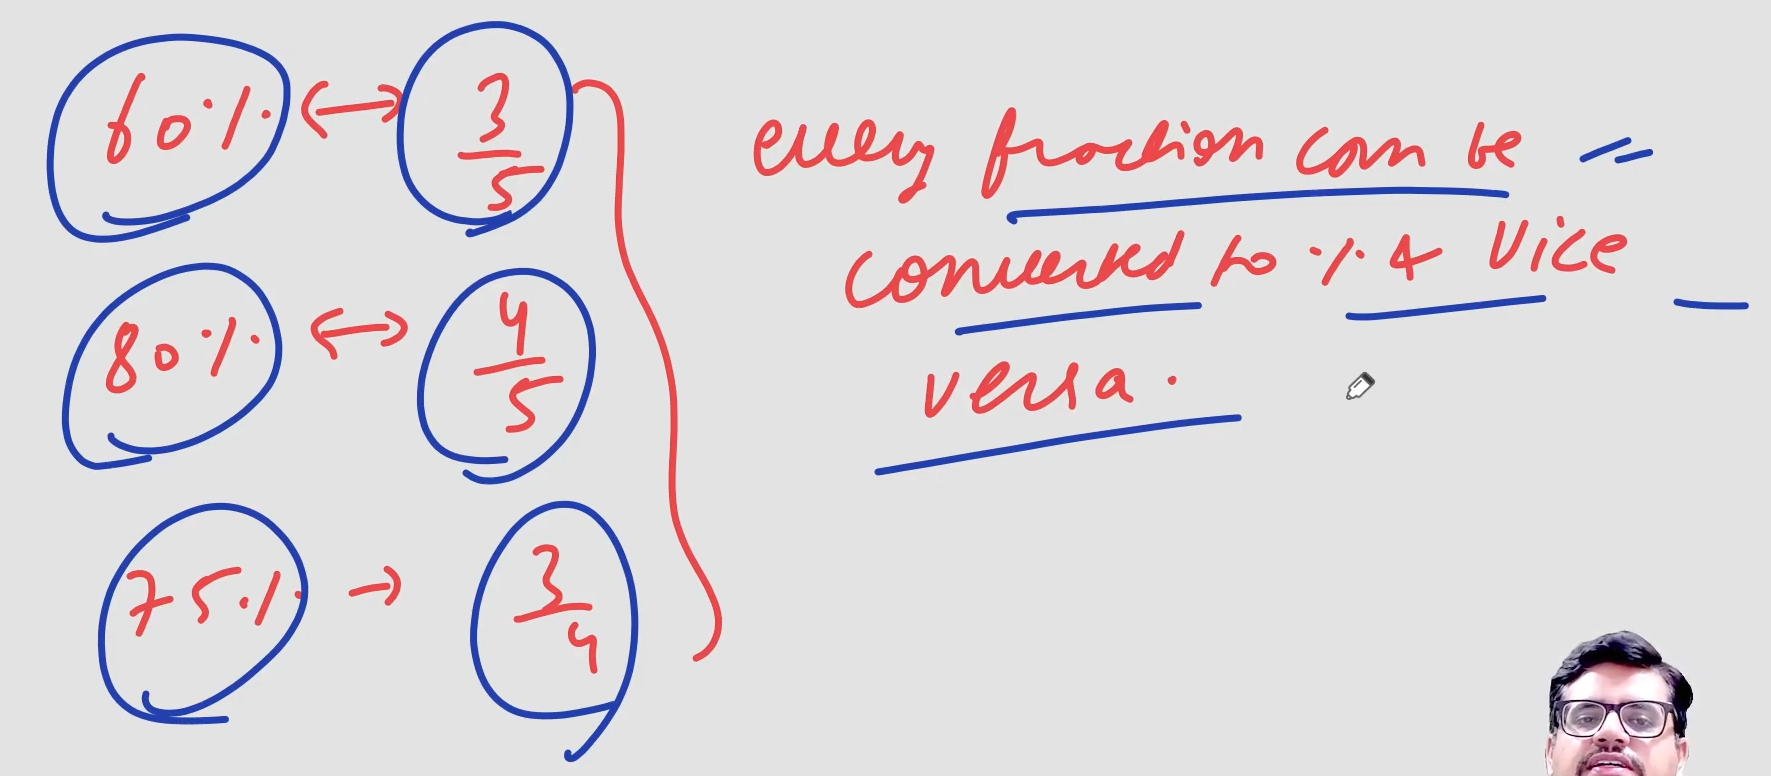 60% ↔ 3/5
80% ↔ 4/5
75% → 3/4
every fraction can be
converted to % & Vice
versa.